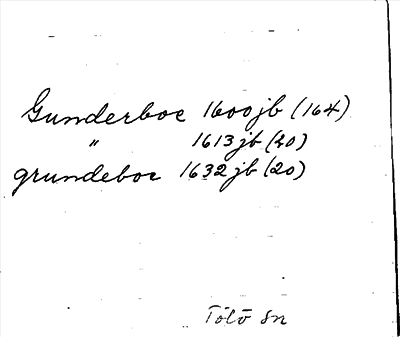 Gunderboe 1600 jb (164)
" 1613 jb (20)
grundeboe 1632 jb (20)
Tölö sn